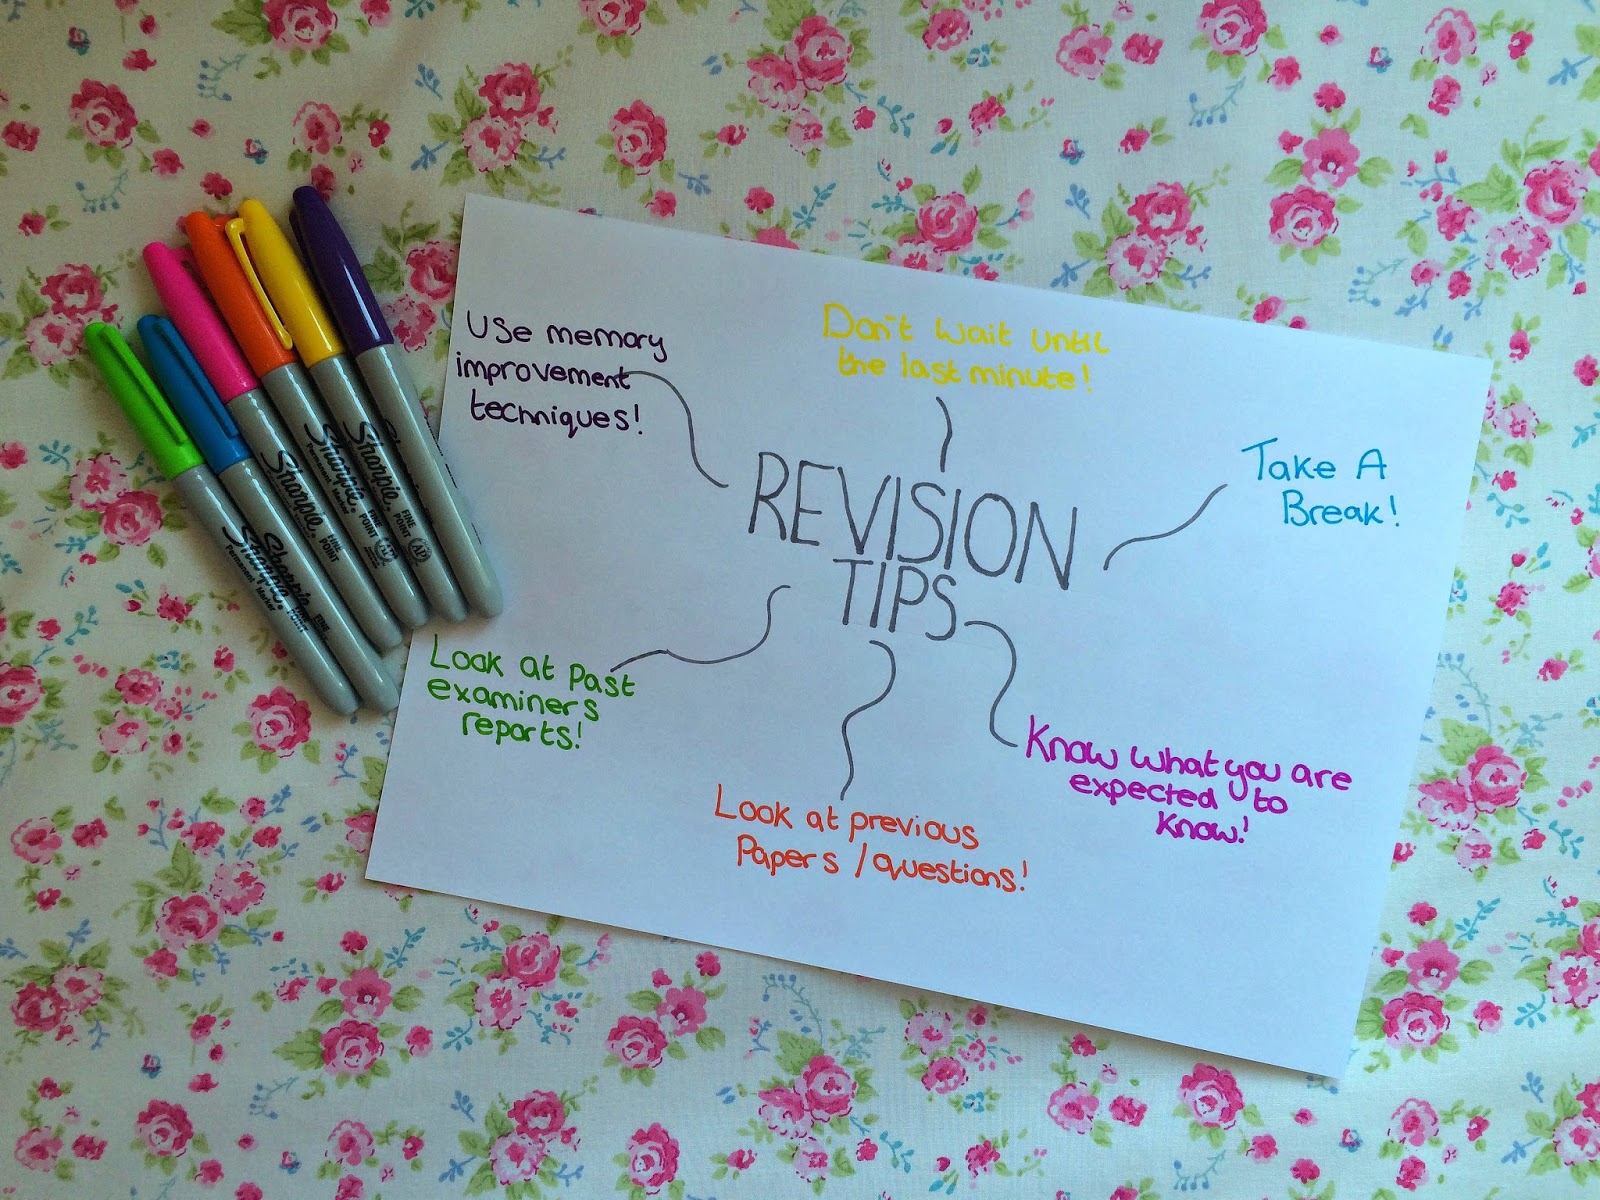 Use memory
improvement
techniques!
Don't wait until
the last minute!
Take A
Break!
REVISION
TIPS
Look at past
examiners
reports!
Look at previous
Papers / questions!
Know what you are
expected to
know!
Sharpie.
FINE
POINT
Sharpie.
FINE
POINT
Permanent Marker
Sharpie.
FINE
POINT
Sharpie.
Permanent Marker
Sharpie.